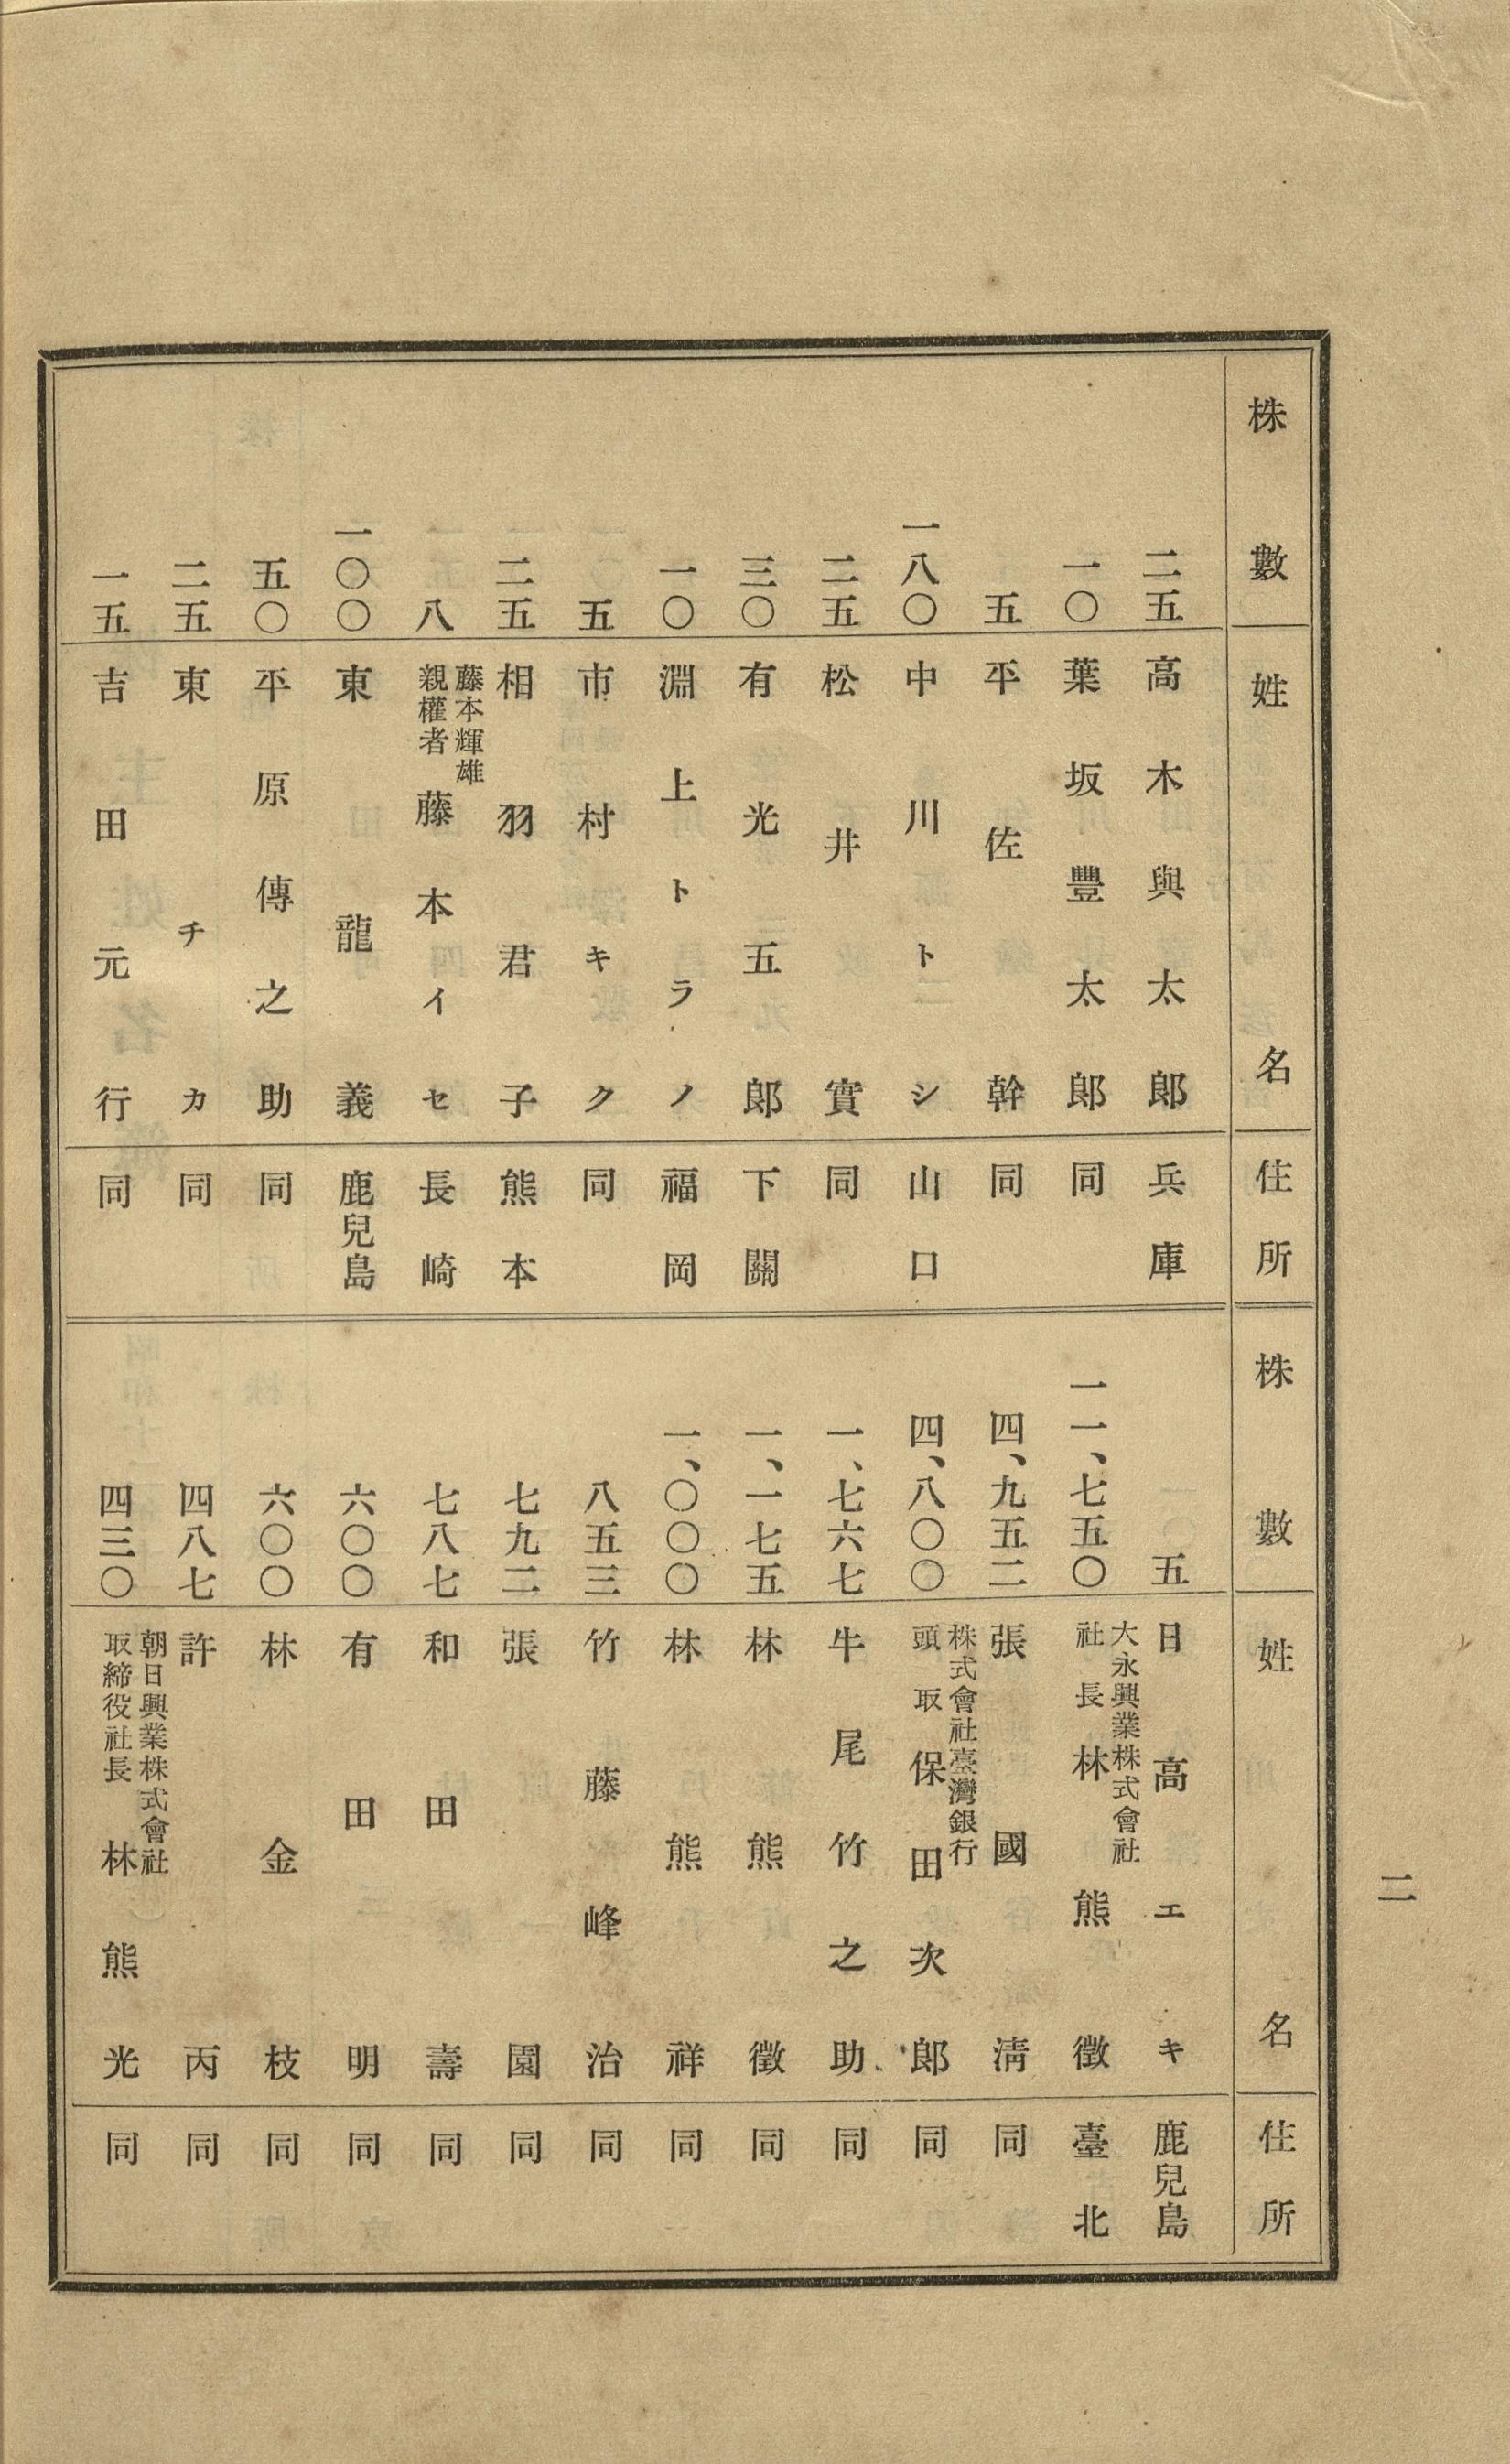 二
株數 姓名 住所
二五 高木與太郎 兵庫
一〇 葉坂豐太郎 同
五 平佐幹 同
一八〇 中川トシ 山口
二五 松井實 同
三〇 有光五郎 下關
一〇 淵上トラノ 福岡
五 市村キク 同
二五 相羽君子 熊本
八 藤本輝雄親權者 藤本イセ 長崎
一〇〇 東龍義 鹿兒島
五〇 平原傳之助 同
二五 東チカ 同
一五 吉田元行 同
株數 姓名 住所
五 日高エキ 鹿兒島
一一、七五〇 大永興業株式會社社長 林熊徵 臺北
四、九五二 張國清 同
四、八〇〇 株式會社臺灣銀行頭取 保田次郎 同
一、七六七 牛尾竹之助 同
一、一七五 林熊徵 同
一、〇〇〇 林熊祥 同
八五三 竹藤峰治 同
七九二 張園 同
七八七 和田壽 同
六〇〇 有田明 同
六〇〇 林金枝 同
四八七 許丙 同
四三〇 朝日興業株式會社取締役社長 林熊光 同